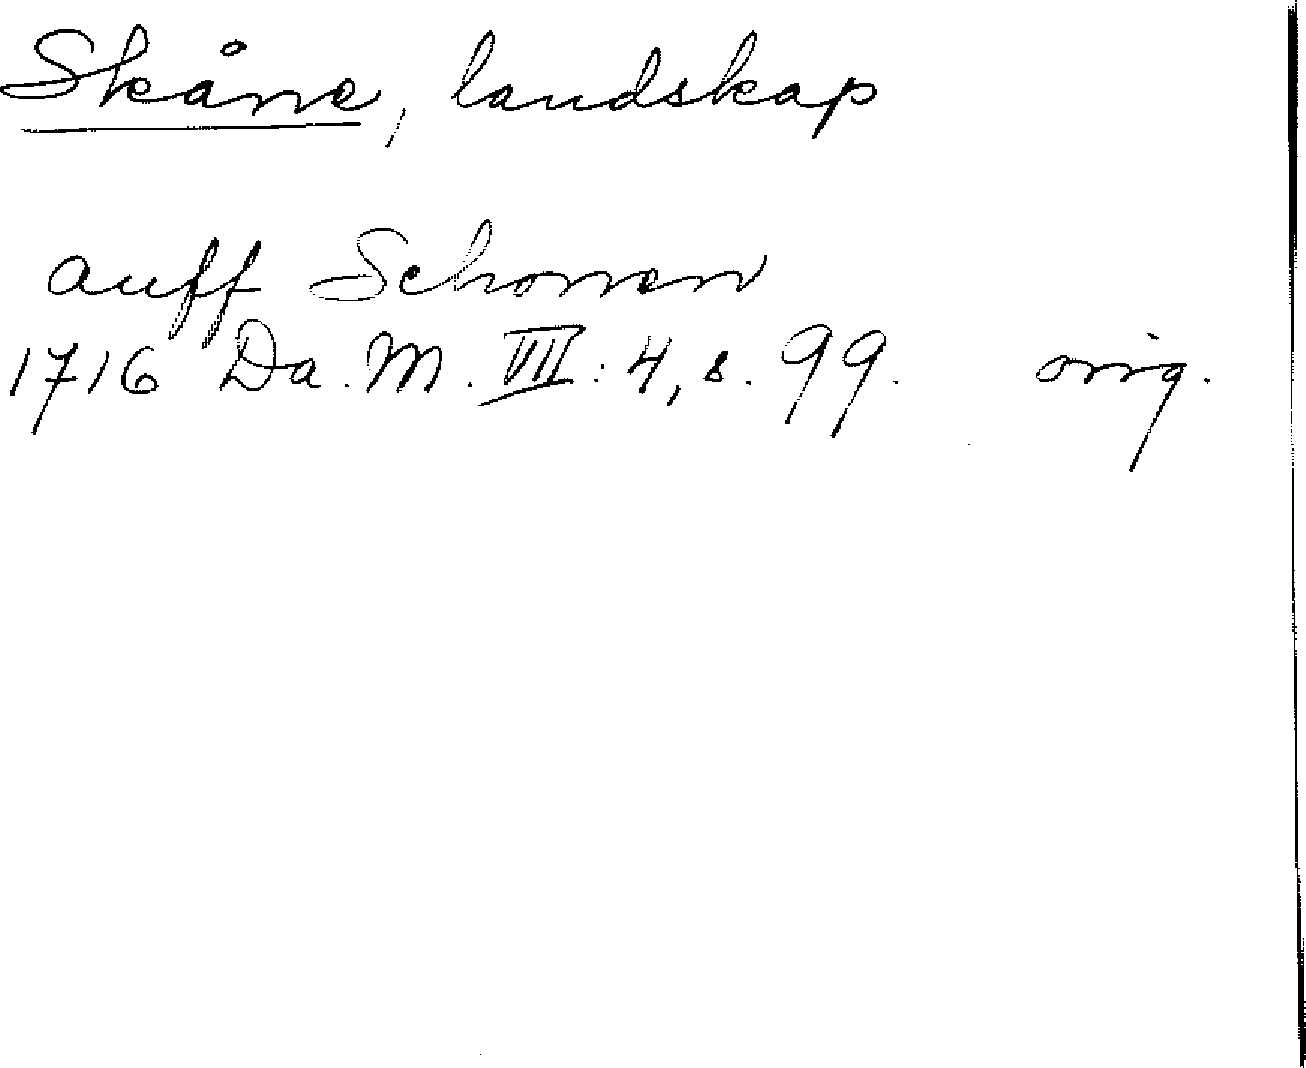 Skåne, landskap
auff Schonen
1716 Da. M. VIII: 4, s. 99. orig.